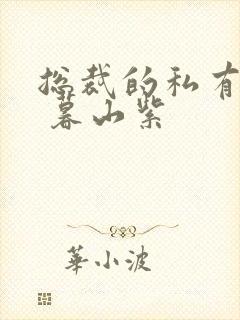 总裁的私有
暮山紫
華小波